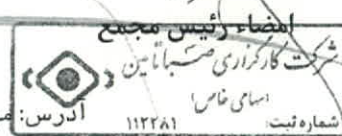 امضاء رئیس مجمع
شرکت کارگزاری صبا تامین
(سهامی خاص)
شماره ثبت: ۱۱۲۲۸۱
آدرس: م